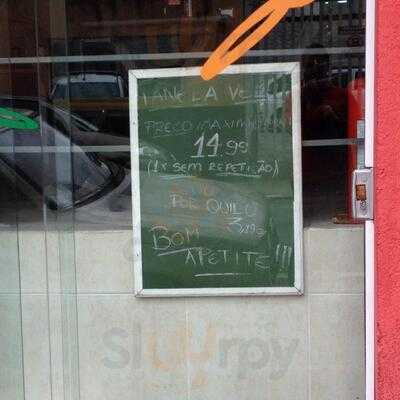 PREÇO MAXIMO
14,99
(1x SEM REPETIÇÃO)
POR QUILO
3,19
BOM
APETITE!!!
Sluurpy